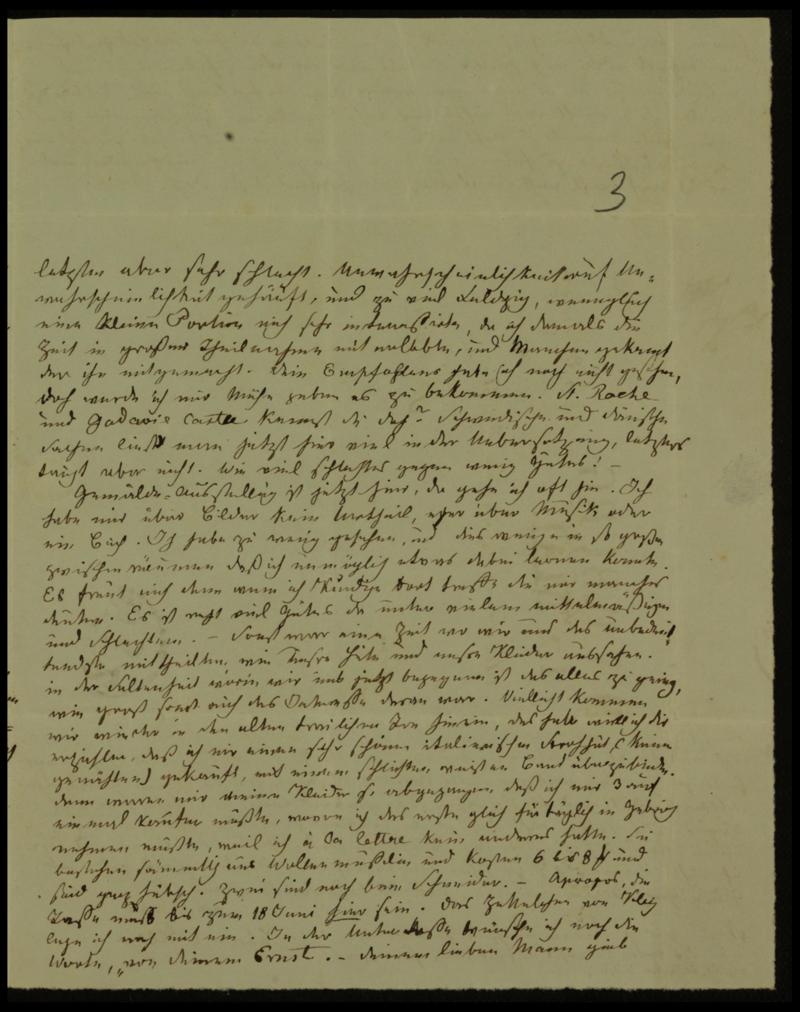 3
letzten aber sehr schlecht. Unwahrscheinlichkeit auf Un-
wahrscheinlichkeit gehäuft, und zu viel, wenngleich
eine kleine Portion mich sehr interessirte, da ich damals die
Zeit in großer Theilnahme mit verlebte, und Manchen gekannt,
der sie mitgemacht. Dein Empfohlenes habe ich noch nicht gesehen,
doch werde ich mir Mühe geben es zu bekommen. St. Roche
und Godwie Castle kennst du doch? Schwedische und dänische
Sachen liest man jetzt hier viel in der Uebersetzung, letztere
taugt aber nicht. Wie viel schlechtes gegen wenig Gutes! –
Gemälde-Ausstellung ist jetzt hier, da gehe ich oft hin. Ich
habe nur über Bilder kein Urtheil, eher über Musik oder
ein Buch. Ich habe zu wenig gesehen, und dies wenige in so großen
Zwischenräumen daß ich unmöglich etwas dabei lernen konnte.
Es freut mich denn wenn ich Kundige dort treffe die mir manches
deuten. Es ist recht viel Gutes da unter vielem mittelmäßigen
und Schlechten. – Sonst war eine Zeit wo wir uns das unbedeu-
tendste mittheilten, wie unsre Hüte und unsre Kleider aussahen.
in der Seltenheit worin wir uns jetzt begegnen ist das alles zu gering,
wie groß sonst auch das Interesse daran war. Vielleicht kommen
wir wieder in den alten traulichen Ton hinein, deshalb will ich dir
erzählen, daß ich mir einen sehr schönen italienischen Strohhut, (keinen
genähten) gekauft, mit einem schlichten weißen Band überzubinden.
dann waren mir meine Kleider so abgegangen daß ich mir 3 auf
einmal kaufen mußte, wovon ich das erste gleich für täglich in Gebrauch
nehmen mußte, weil ich à la lettre kein anderes hatte. Sie
bestehen sämmtlich aus Wollenmusselin und kosten 6 bis 8 und
sind ganz hübsch. Zwei sind noch beim Schneider. – Apropos, die
Tasse muß bis zum 18 Juni hier sein. Das Zettelchen von
lege ich noch mit ein. In der Untertasse wünsche ich noch die
Worte, „von deinem Ernst. – deinem lieben Mann gieb